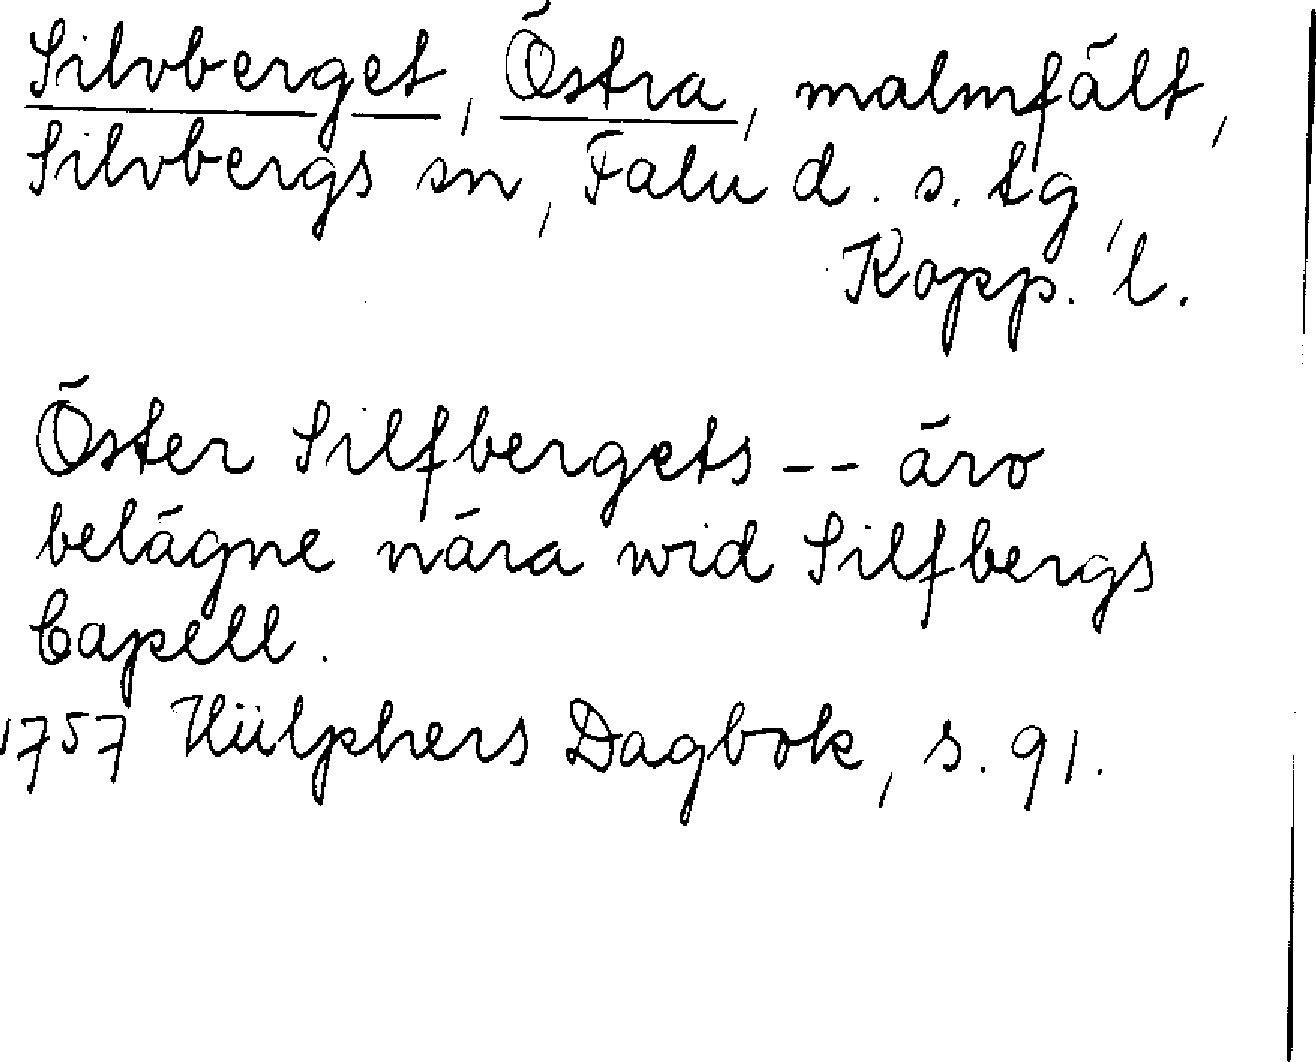 Silvberget, Östra, malmfält,
Silvbergs sn, Falu d. s. tg,
Kopp. l.
Öster Silfbergets -- äro
belägne nära wid Silfbergs
Capell.
1757 Hülphers Dagbok, s. 91.